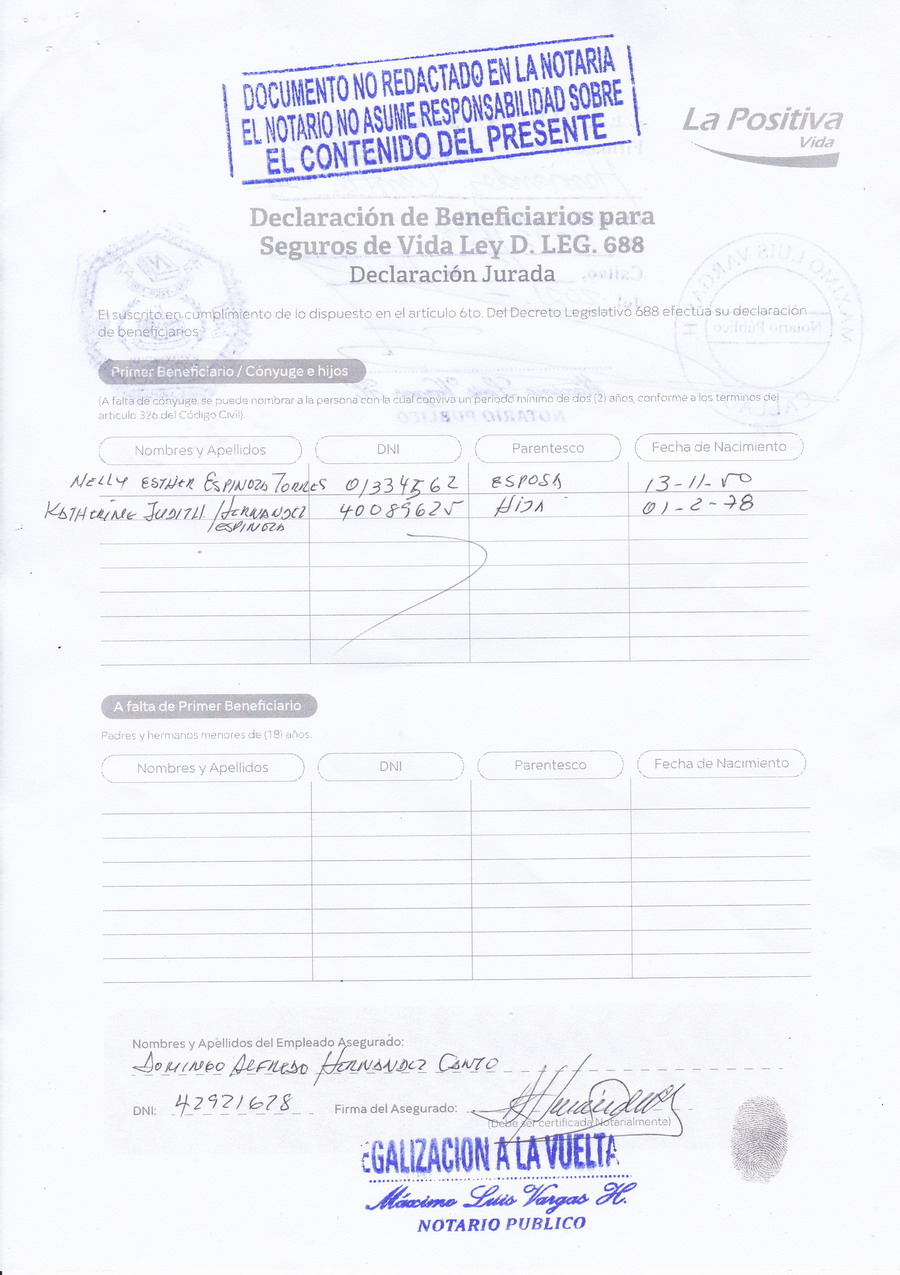 DOCUMENTO NO REDACTADO EN LA NOTARIA
EL NOTARIO NO ASUME RESPONSABILIDAD SOBRE
EL CONTENIDO DEL PRESENTE
La Positiva
Vida
Declaración de Beneficiarios para
Seguros de Vida Ley D. LEG. 688
Declaración Jurada
El suscrito en cumplimiento de lo dispuesto en el artículo 6to. Del Decreto Legislativo 688 efectúa su declaración
de beneficiarios
Primer Beneficiario / Cónyuge e hijos
(A falta de cónyuge, se puede nombrar a la persona con la cual conviva un periodo mínimo de dos (2) años, conforme a los términos del
artículo 326 del Código Civil).
Nombres y Apellidos DNI Parentesco Fecha de Nacimiento
NELLY ESTHER ESPINOZA TORRES 01334562 ESPOSA 13-11-50
KATHERINE JUDITH HERNANDEZ 40089625 HIJA 01-2-78
ESPINOZA
A falta de Primer Beneficiario
Padres y hermanos menores de (18) años.
Nombres y Apellidos DNI Parentesco Fecha de Nacimiento
Nombres y Apellidos del Empleado Asegurado:
DOMINGO ALFREDO HERNANDEZ CANTO
DNI: 42921628 Firma del Asegurado:
(Debe ser certificada Notarialmente)
EGALIZACION A LA VUELTA
Máximo Luis Vargas H.
NOTARIO PUBLICO